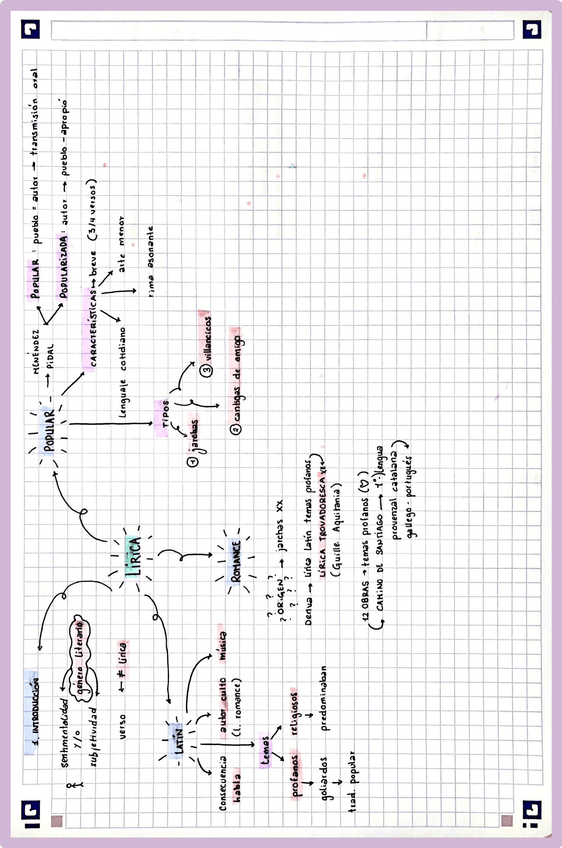 1. INTRODUCCIÓN
sentimentalidad
y/o
subjetividad
género literario
verso ← ≠ lírica
LÍRICA
POPULAR
MENÉNDEZ
→ PIDAL
POPULAR: pueblo = autor → transmisión oral
POPULARIZADA: autor → pueblo - apropió
CARACTERÍSTICAS → breve (3/4 versos)
arte menor
rima asonante
Lenguaje cotidiano
TIPOS
① jarchas
② cantigas de amigo
③ villancicos
LATÍN
consecuencia
habla
autor culto
(l. romance)
música
temas
profanos
religiosos
goliardos
predominaban
trad. popular
ROMANCE
? ? ? ?
? ORIGEN? → jarchas XX
? ? ? ?
Deriva → lírica latín temas profanos
LÍRICA TROVADORESCA
(Guille. Aquitania)
12 OBRAS → temas profanos (♡)
CAMINO DE SANTIAGO → 1º) lengua
provenzal catalana
gallego - portugués